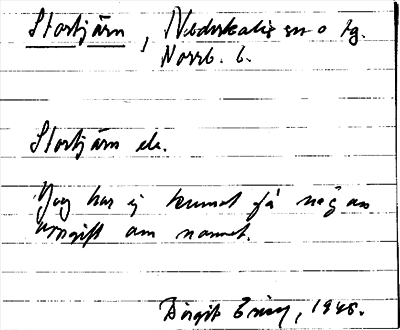 Stortjärn, Nederkalix sn o tg.
Norrb. l.
Stortjärn
Jag har ej kunnat få någon
uppgift om namnet.
Birgit 1948.